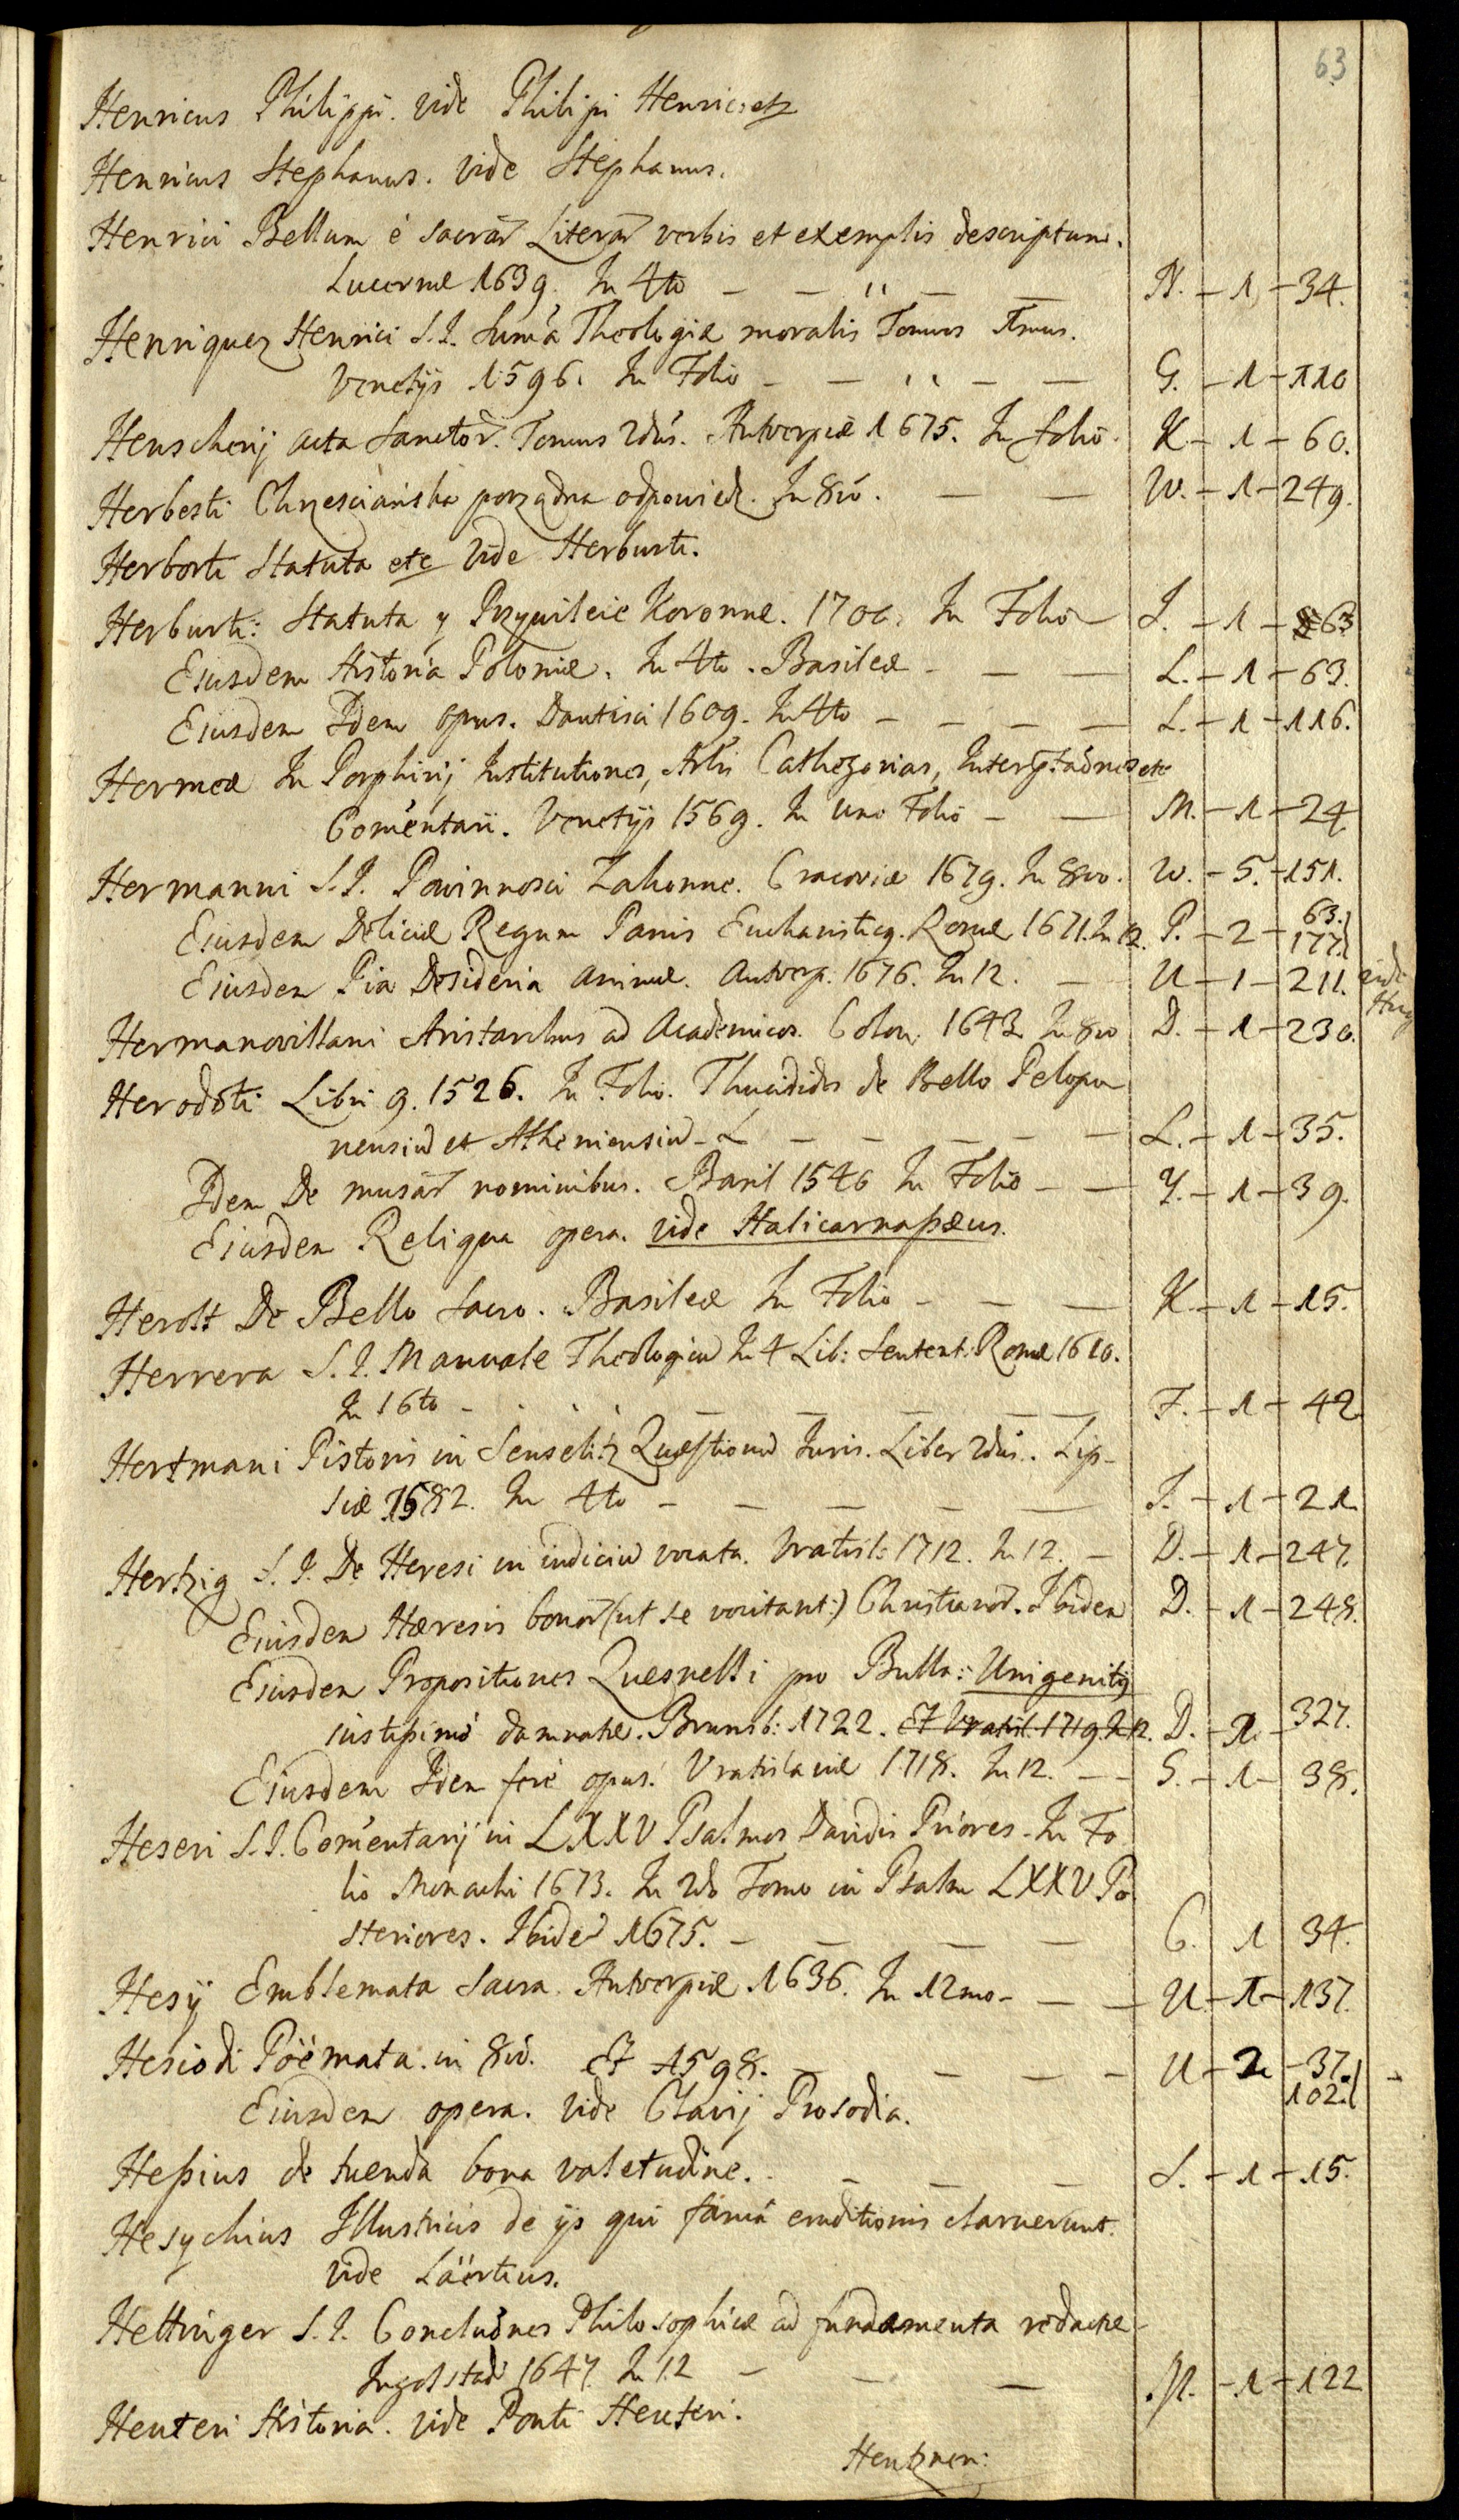 63
Henricus Philippi. vide Philipi Henrici etz
Henricus Stephanus. vide Stephanus.
Henrici Bellum è sacrar̃ Literar̃ verbis et exemplis descriptum.
Lucernæ 1639. In 4to — — " — — N. – 1 – 34.
Henriquez Henrici S.I. Sum̃a Theologiæ moralis Tomus Imus.
Venetijs 1596. In Folio – — " – — G. – 1 – 110
Henschenij acta Sanctor̃. Tomus 2dus. Antverpiæ 1675. In folio. K – 1 – 60.
Herbesti Chrzesciańska porządna odpowiedz. In 8vo. — — W. – 1 – 249.
Herborti Statuta etc vide Herburti.
Herburti: Statuta y Przywileie Koronne. 1700. In Folio — I. – 1 – 63
Eiusdem Historia Poloniæ. In 4to. Basileæ – — — L. – 1 – 63.
Eiusdem Idem opus. Dantisci 1609. In 4to – – — — L. – 1 – 116.
Hermeæ In Porphirij Institutiones, Arlis Cathegorias, Interp̃taõnes etc
Com̃entarii. Venetijs 1569. In uno Folio – — M. – 1 – 24
Hermanni S.I. Powinnosci Zakonne. Cracoviæ 1679. In 8vo. W. – 5. – 151.
Eiusdem Deliciæ Regum Panis Eucharisticq. Romæ 1671. In 12. P. – 2 – 63.
177.
Eiusdem Pia Desideria animæ. Antverp. 1676. In 12. — U – 1 – 211. vide
Hug
Hermanovillani Aristarchus ad Academicos. Colon. 1643. In 8vo D. – 1 – 230.
Herodoti Libri 9. 1526. In Folio. Thucidides de Bello Pelopo
nensiũ et Atheniensiũ – L — – — – — L. – 1 – 35.
Idem De musar̃ nominibus. Basil 1546 In Folio – — Y. – 1 – 39.
Eiusdem Reliqua opera. vide Halicarnaßæus.
Herolt De Bello Sacro. Basileæ In Folio – — — K – 1 – 15.
Herrera S.I. Manuale Theologicũ In 4 Lib: Sentent: Romæ 1610.
In 16to – – – — — — — F. – 1 – 42
Hertmani Pistoris in Senselitz Quæstionũ Iuris. Liber 2dus. Lip-
siæ 1582. In 4to – — — — — I. – 1 – 21
Hertzig S.I. De Heresi in iudiciũ vocata. Vratisl: 1712. In 12. — D. – 1 – 247.
Eiusdem Hæresis bonor̃ (ut se vocitant:) Christianor̃. Ibidem D. – 1 – 248.
Eiusdem Propositiones Quesnelli pro Bulla: Unigenitq
iustißimè damnatæ. Brunsb: 1722. Et Vratisl. 1719. In 12. D. – 1 – 327.
Eiusdem Idem ferè opus. Vratislaviæ 1718. In 12. — – S. – 1 – 38.
Heseri S.I. Com̃entarij in LXXV Psalmos Davidis Priores. In Fo
lio Monachi 1673. In 2do Tomo in Psalm LXXV Po
steriores. Ibidẽ 1675. – — — — C. 1 34.
Hesij Emblemata Sacra. Antverpiæ 1636. In 12mo – — — U. – 1 – 137.
Hesiodi Poëmata. in 8vo. Et 1598. — — — – U – 2 – 37.
102.
Eiusdem opera. vide Clavij Prosodia.
Heßius de tuenda bona valetudine. — — — L. – 1 – 15.
Hesychius Illustrius de ijs qui famâ eruditionis claruerunt.
vide Läërtius.
Hettinger S.I. Concluõnes Philosophicæ ad fundamenta redactæ –
Ingolstad 1647. In 12 – — — M. – 1 – 122
Heuteri Historia. vide Ponti Heuteri.
Hentzneri: